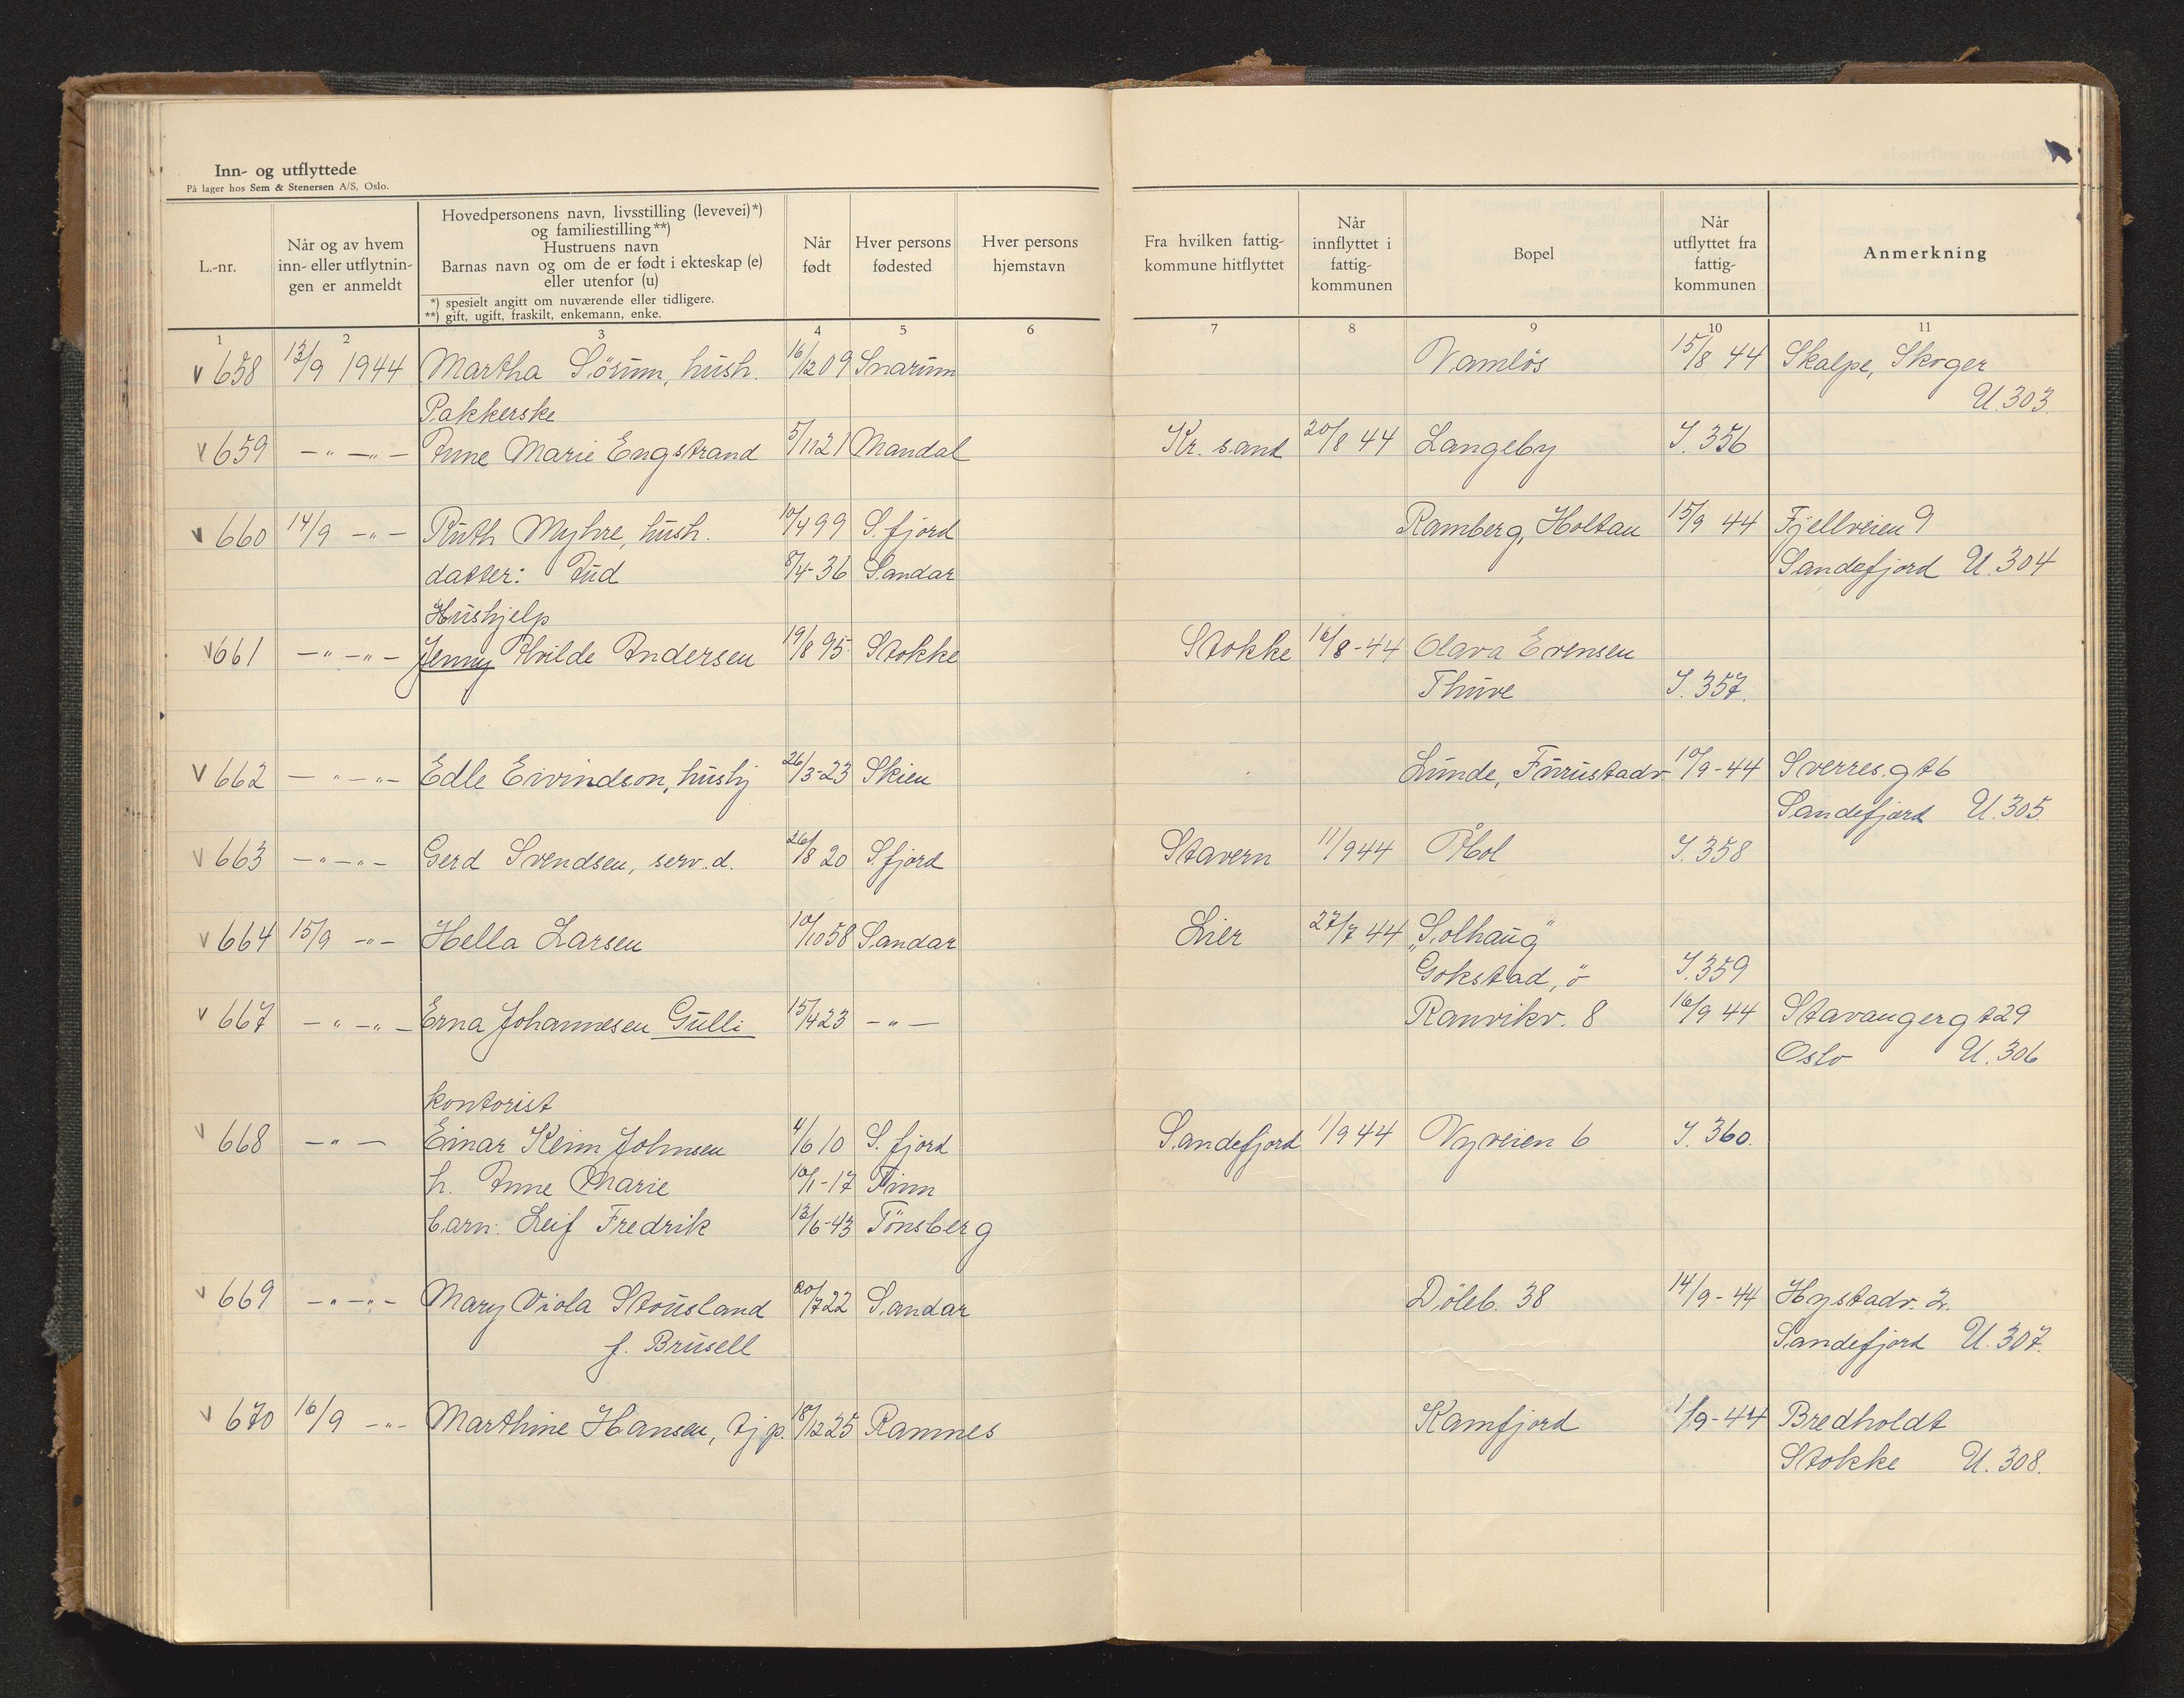 Inn- og utflyttede
På lager hos Sem & Stenersen A/S, Oslo.
L.-nr.
Når og av hvem
inn- eller utflytnin-
gen er anmeldt
Hovedpersonens navn, livsstilling (levevei)*)
og familiestilling**)
Hustruens navn
Barnas navn og om de er født i ekteskap (e)
eller utenfor (u)
*) spesielt angitt om nuværende eller tidligere.
**) gift, ugift, fraskilt, enkemann, enke.
Når
født
Hver persons
fødested
Hver persons
hjemstavn
Fra hvilken fattig-
kommune hitflyttet
Når
innflyttet i
fattig-
kommunen
Bopel
Når
utflyttet fra
fattig-
kommunen
Anmerkning
1 2 3 4 5 6 7 8 9 10 11
v 658 13/9 1944 Martha Sörum, hush. 16/12 09 Snarum Vamlös 15/8 44 Skalpe, Skoger
U. 303.
Pakkerske
v 659 -"- -"- Anne Marie Engstrand 5/11 21 Mandal Kr. sand 20/8 44 Langeby I. 356
v 660 14/9 -"- Ruth Myhre, hush. 10/4 99 S. fjord Ramberg, Holtan 15/9 44 Fjellveien 9
datter: Aud 8/4-36 Sandar Sandefjord U. 304
Hushjelp
v 661 -"- -"- Jenny Alvilde Andersen 19/8 95 Stokke Stokke 16/8-44 Olava Evensen
Thuve I. 357.
v 662 -"- -"- Edle Eivindson, hushj 26/3-23 Skien Lunde, Furustadv. 10/9-44 Sverres.gt 6
Sandefjord U. 305.
v 663 -"- -"- Gerd Svendsen, serv. d. 26/8 20 S. fjord Stavern 11/9 44 Åbol I. 358
v 664 15/9 -"- Hella Larsen 10/10 58 Sandar Lier 27/7 44 "Solhaug"
Gokstad, ö I. 359
v 667 -"- -"- Erna Johannesen Gulli 15/4 23 -"- Ranvikv. 8 16/9 44 Stavangergt 29
Oslo U. 306
kontorist
v 668 -"- Einar Keim Johnsen 4/6 10 S. fjord Sandefjord 1/9 44 Nyveien 6 I. 360.
h. Anne Marie 10/1-17 Tinn
barn: Leif Fredrik 13/6-43 Tönsberg
v 669 -"- -"- Mary Viola Stousland 20/7 22 Sandar Döleb. 38 14/9-44 Hystadv. 2.
f. Brusell Sandefjord U. 307.
v 670 16/9 -"- Marthine Hansen, tj p. 18/12 25 Ramnes Kamfjord 1/9-44 Bredholdt
Stokke U. 308.